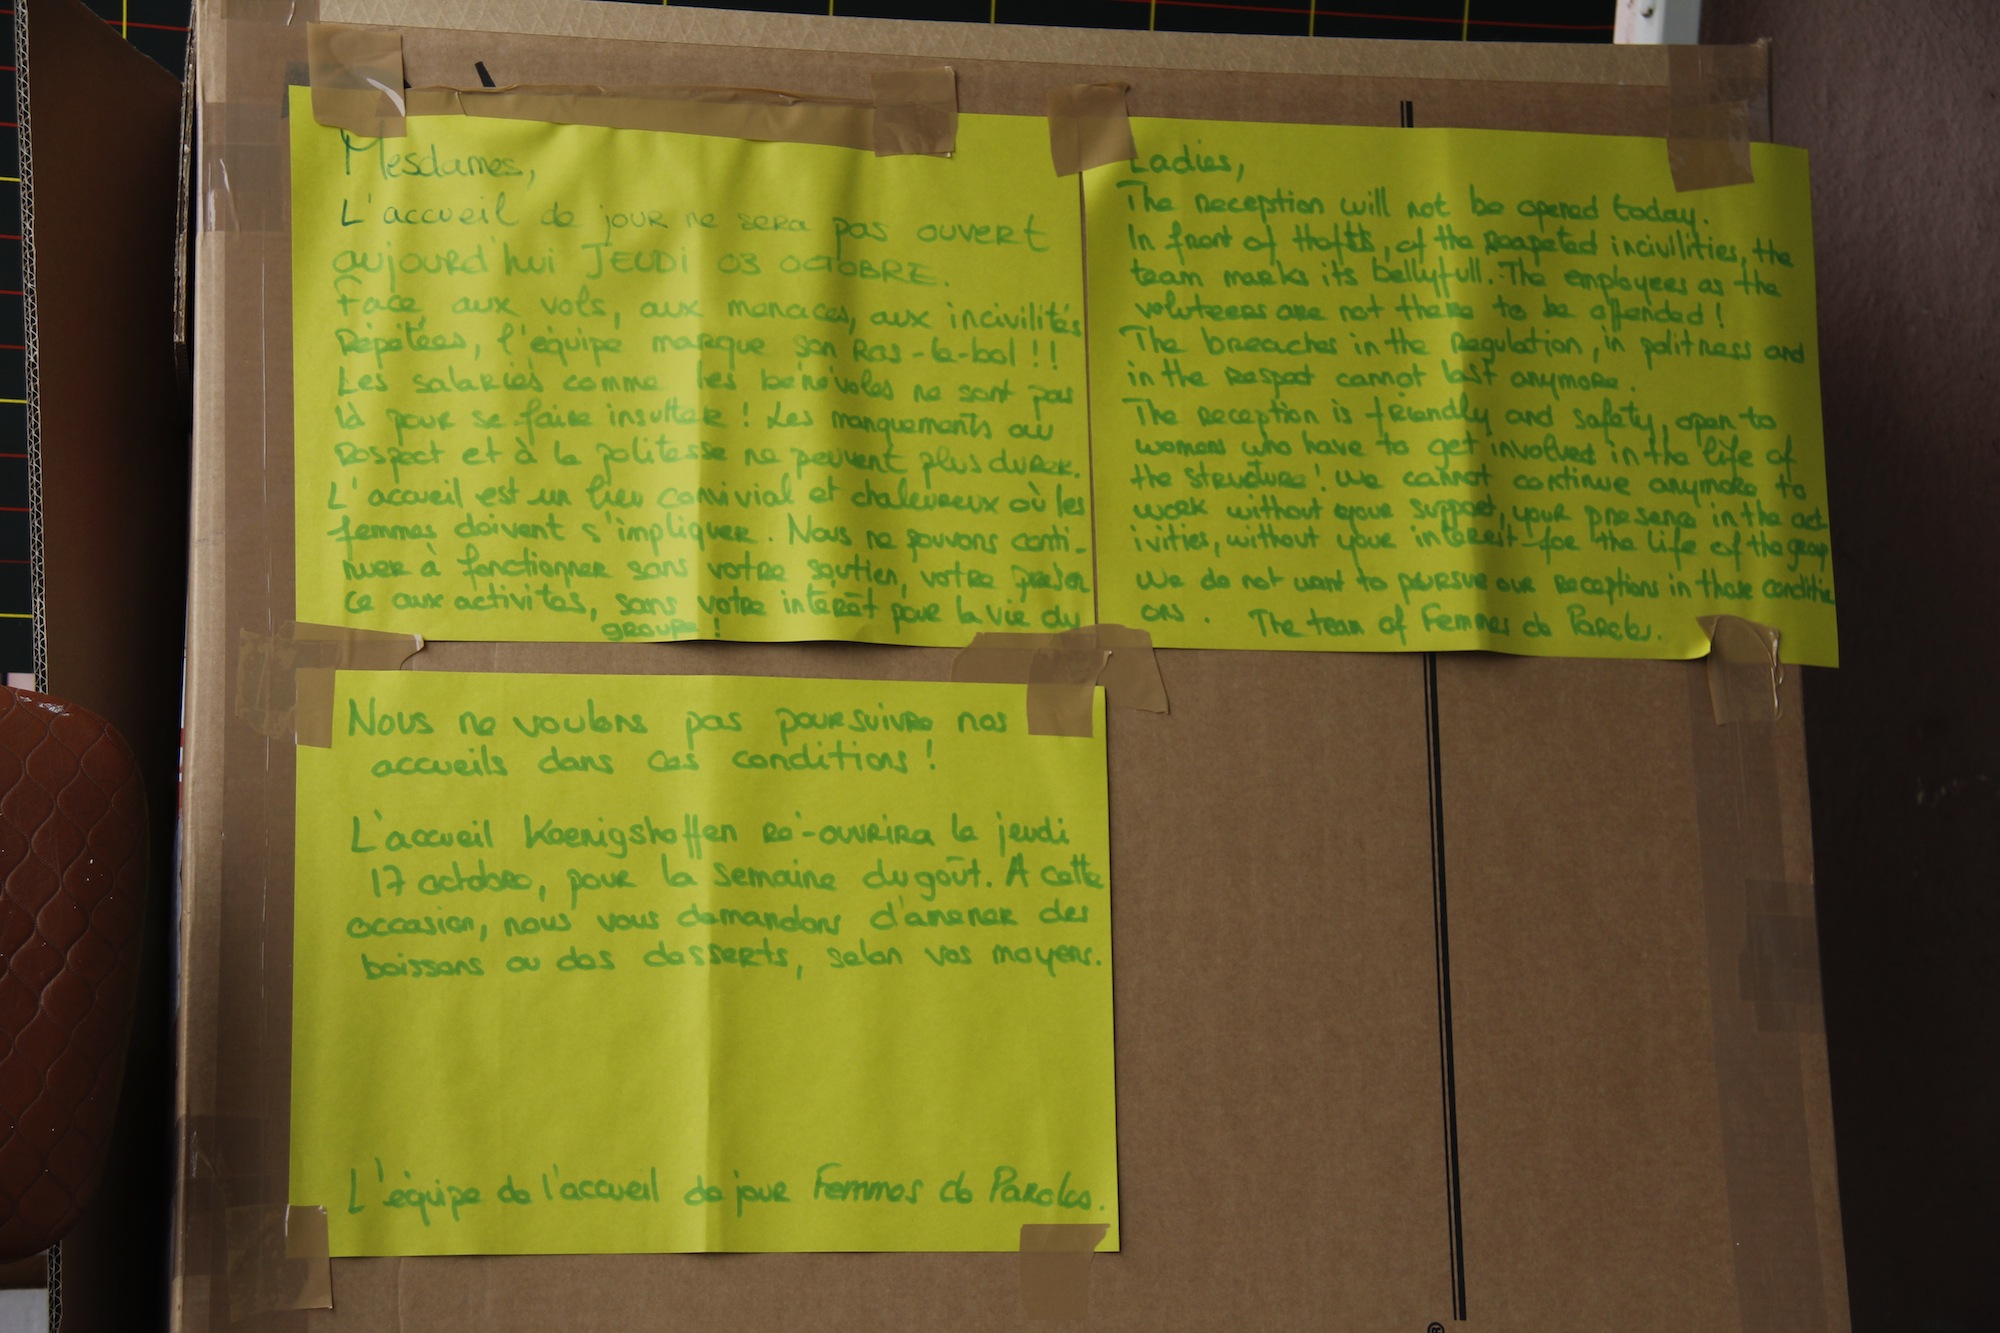 Mesdames,
L'accueil de jour ne sera pas ouvert
aujourd'hui JEUDI 03 OCTOBRE.
Face aux vols, aux menaces, aux incivilités
Répétées, l'équipe marque son Ras-le-bol !!
Les salariés comme les bénévoles ne sont pas
là pour se faire insulter ! Les manquements au
Respect et à la politesse ne peuvent plus durer.
L'accueil est un lieu convivial et chaleureux où les
femmes doivent s'impliquer. Nous ne pouvons conti-
nuer à fonctionner sans votre soutien, votre présen
ce aux activités, sans votre intérêt pour la vie du
groupe !
Ladies,
The reception will not be opened today.
In front of thefts, of the reapeted incivilities, the
team marks its bellyfull. The employees as the
voluteers are not there to be offended !
The breaches in the regulation, in politness and
in the respect cannot last anymore.
The reception is friendly and safety, open to
womens who have to get involved in the life of
the structure ! We cannot continue anymore to
work without your support, your presence in the act
ivities, without your interest for the life of the group
We do not want to pursue our receptions in those conditi
ons. The team of Femmes de Paroles.
Nous ne voulons pas poursuivre nos
accueils dans ces conditions !
L'accueil Koenigshoffen ré-ouvrira le jeudi
17 octobre, pour la semaine du goût. A cette
occasion, nous vous demandons d'amener des
boissons ou des desserts, selon vos moyens.
L'équipe de l'accueil de jour Femmes de Paroles.